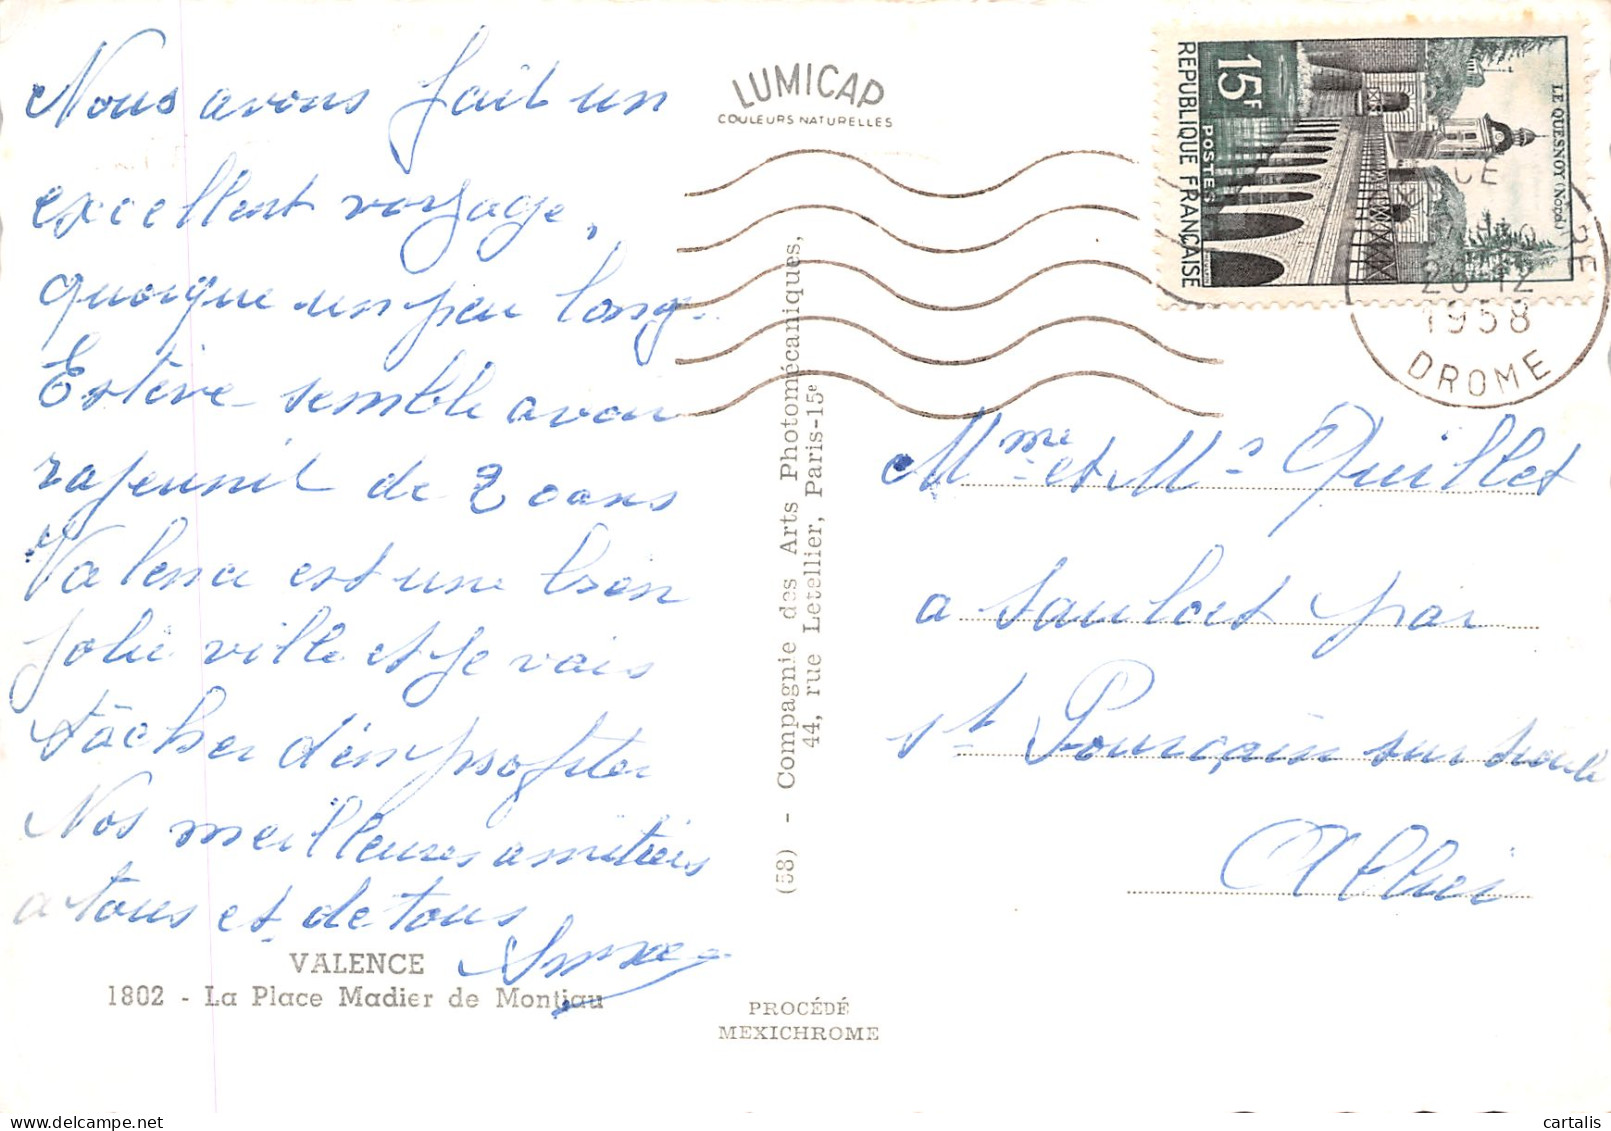 Nous avons fait un
excellent voyage,
quoique un peu long.
Estève semble avoir
rajeunit de 20 ans
Valence est une bien
jolie ville et je vais
tâcher d'en profiter
Nos meilleures amitiés
a tous et de tous
VALENCE
1802 - La Place Madier de Montjau
LUMICAP
COULEURS NATURELLES
(58) - Compagnie des Arts Photomécaniques,
44, rue Letellier, Paris-15e
PROCÉDÉ
MEXICHROME
REPUBLIQUE FRANÇAISE
15F
POSTES
LE QUESNOY (Nord)
26-12
1958
DROME
Mme et Mr Quillet
a Saulcet par
St Pourçain sur Sioule
Allier
cartalis